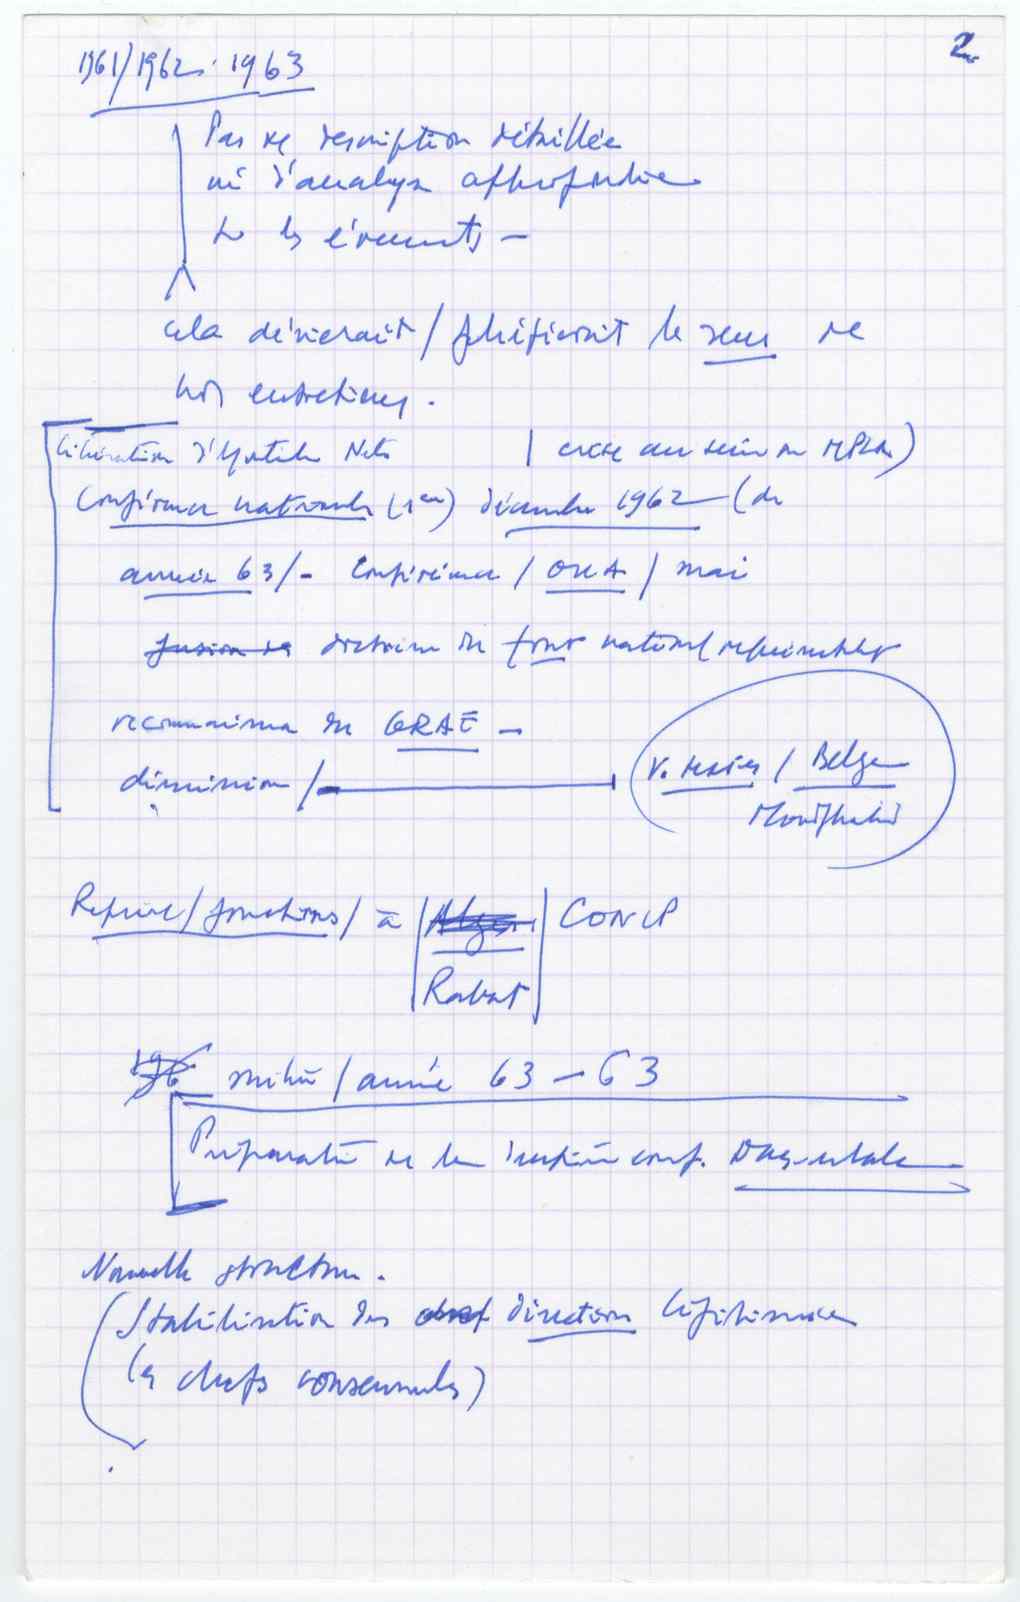 2.
1961/1962. 1963
Pas de description détaillée
ni d'analyse approfondie
de les évènements –
cela dévierait / falsifierait le sens de
nos entretiens.
Libération d'Agostinho Neto | crise au sein du MPLA)
Conférence nationale (1ère) décembre 1962 (du
année 63/- Conférence / OUA / mai
fusion de doctrine du front national
reconnaissance du GRAE –
dimension /
V. textes / Belge
Reprise / fonctions / à | Alger | CONCP
Rabat
196 suite / année 63 – 63
Préparation de la conf. Dar-es-
Nouvelle structure.
(Stabilisation des chef direction légitimée
(les chefs consensuels)